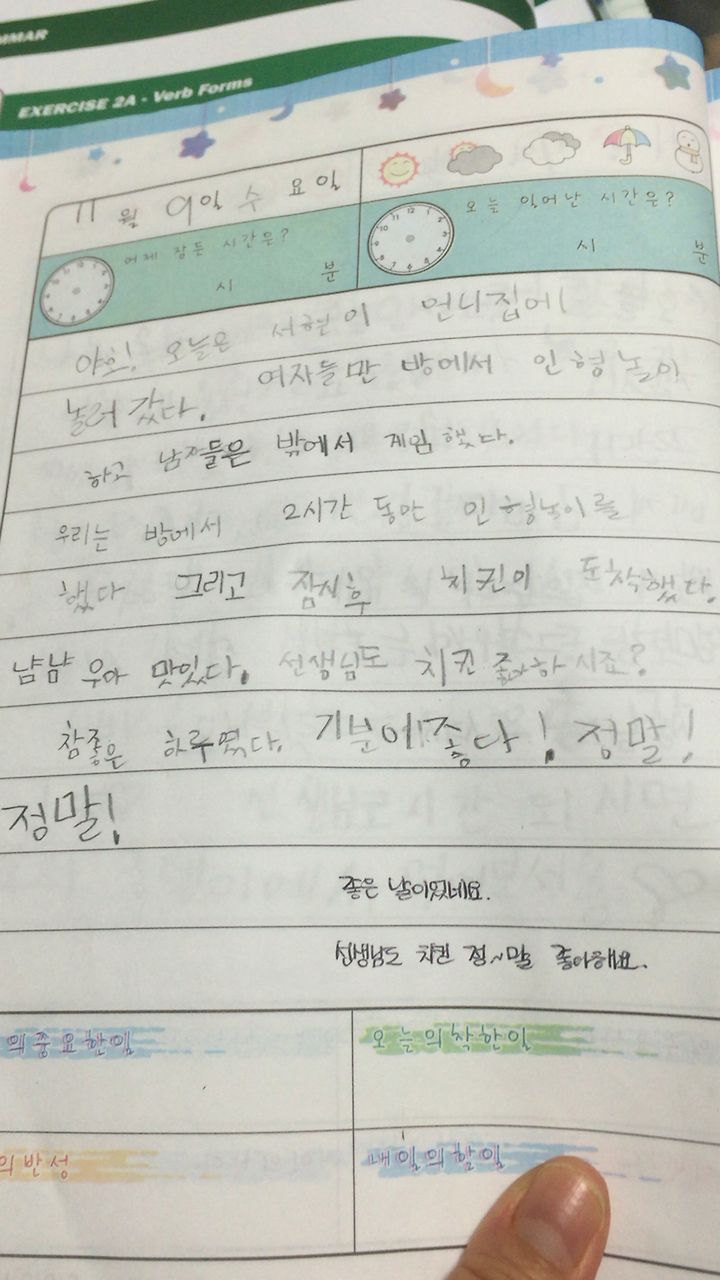 MMAR
EXERCISE 2A - Verb Forms
11월 9일 수요일
어제 잠든 시간은?
시 분
오늘 일어난 시간은?
시 분
야호! 오늘은 서현이 언니집에
놀러 갔다. 여자들만 방에서 인형놀이
하고 남자들은 밖에서 게임했다.
우리는 방에서 2시간 동안 인형놀이를
했다 그리고 잠시후 치킨이 도착했다.
냠냠 우아 맛있다. 선생님도 치킨 좋아하시죠?
참좋은 하루였다. 기분에좋다! 정말!
정말!
좋은 날이였네요.
선생님도 치킨 정~말 좋아해요.
의중요한일
오늘의착한일
의반성
내일의할일